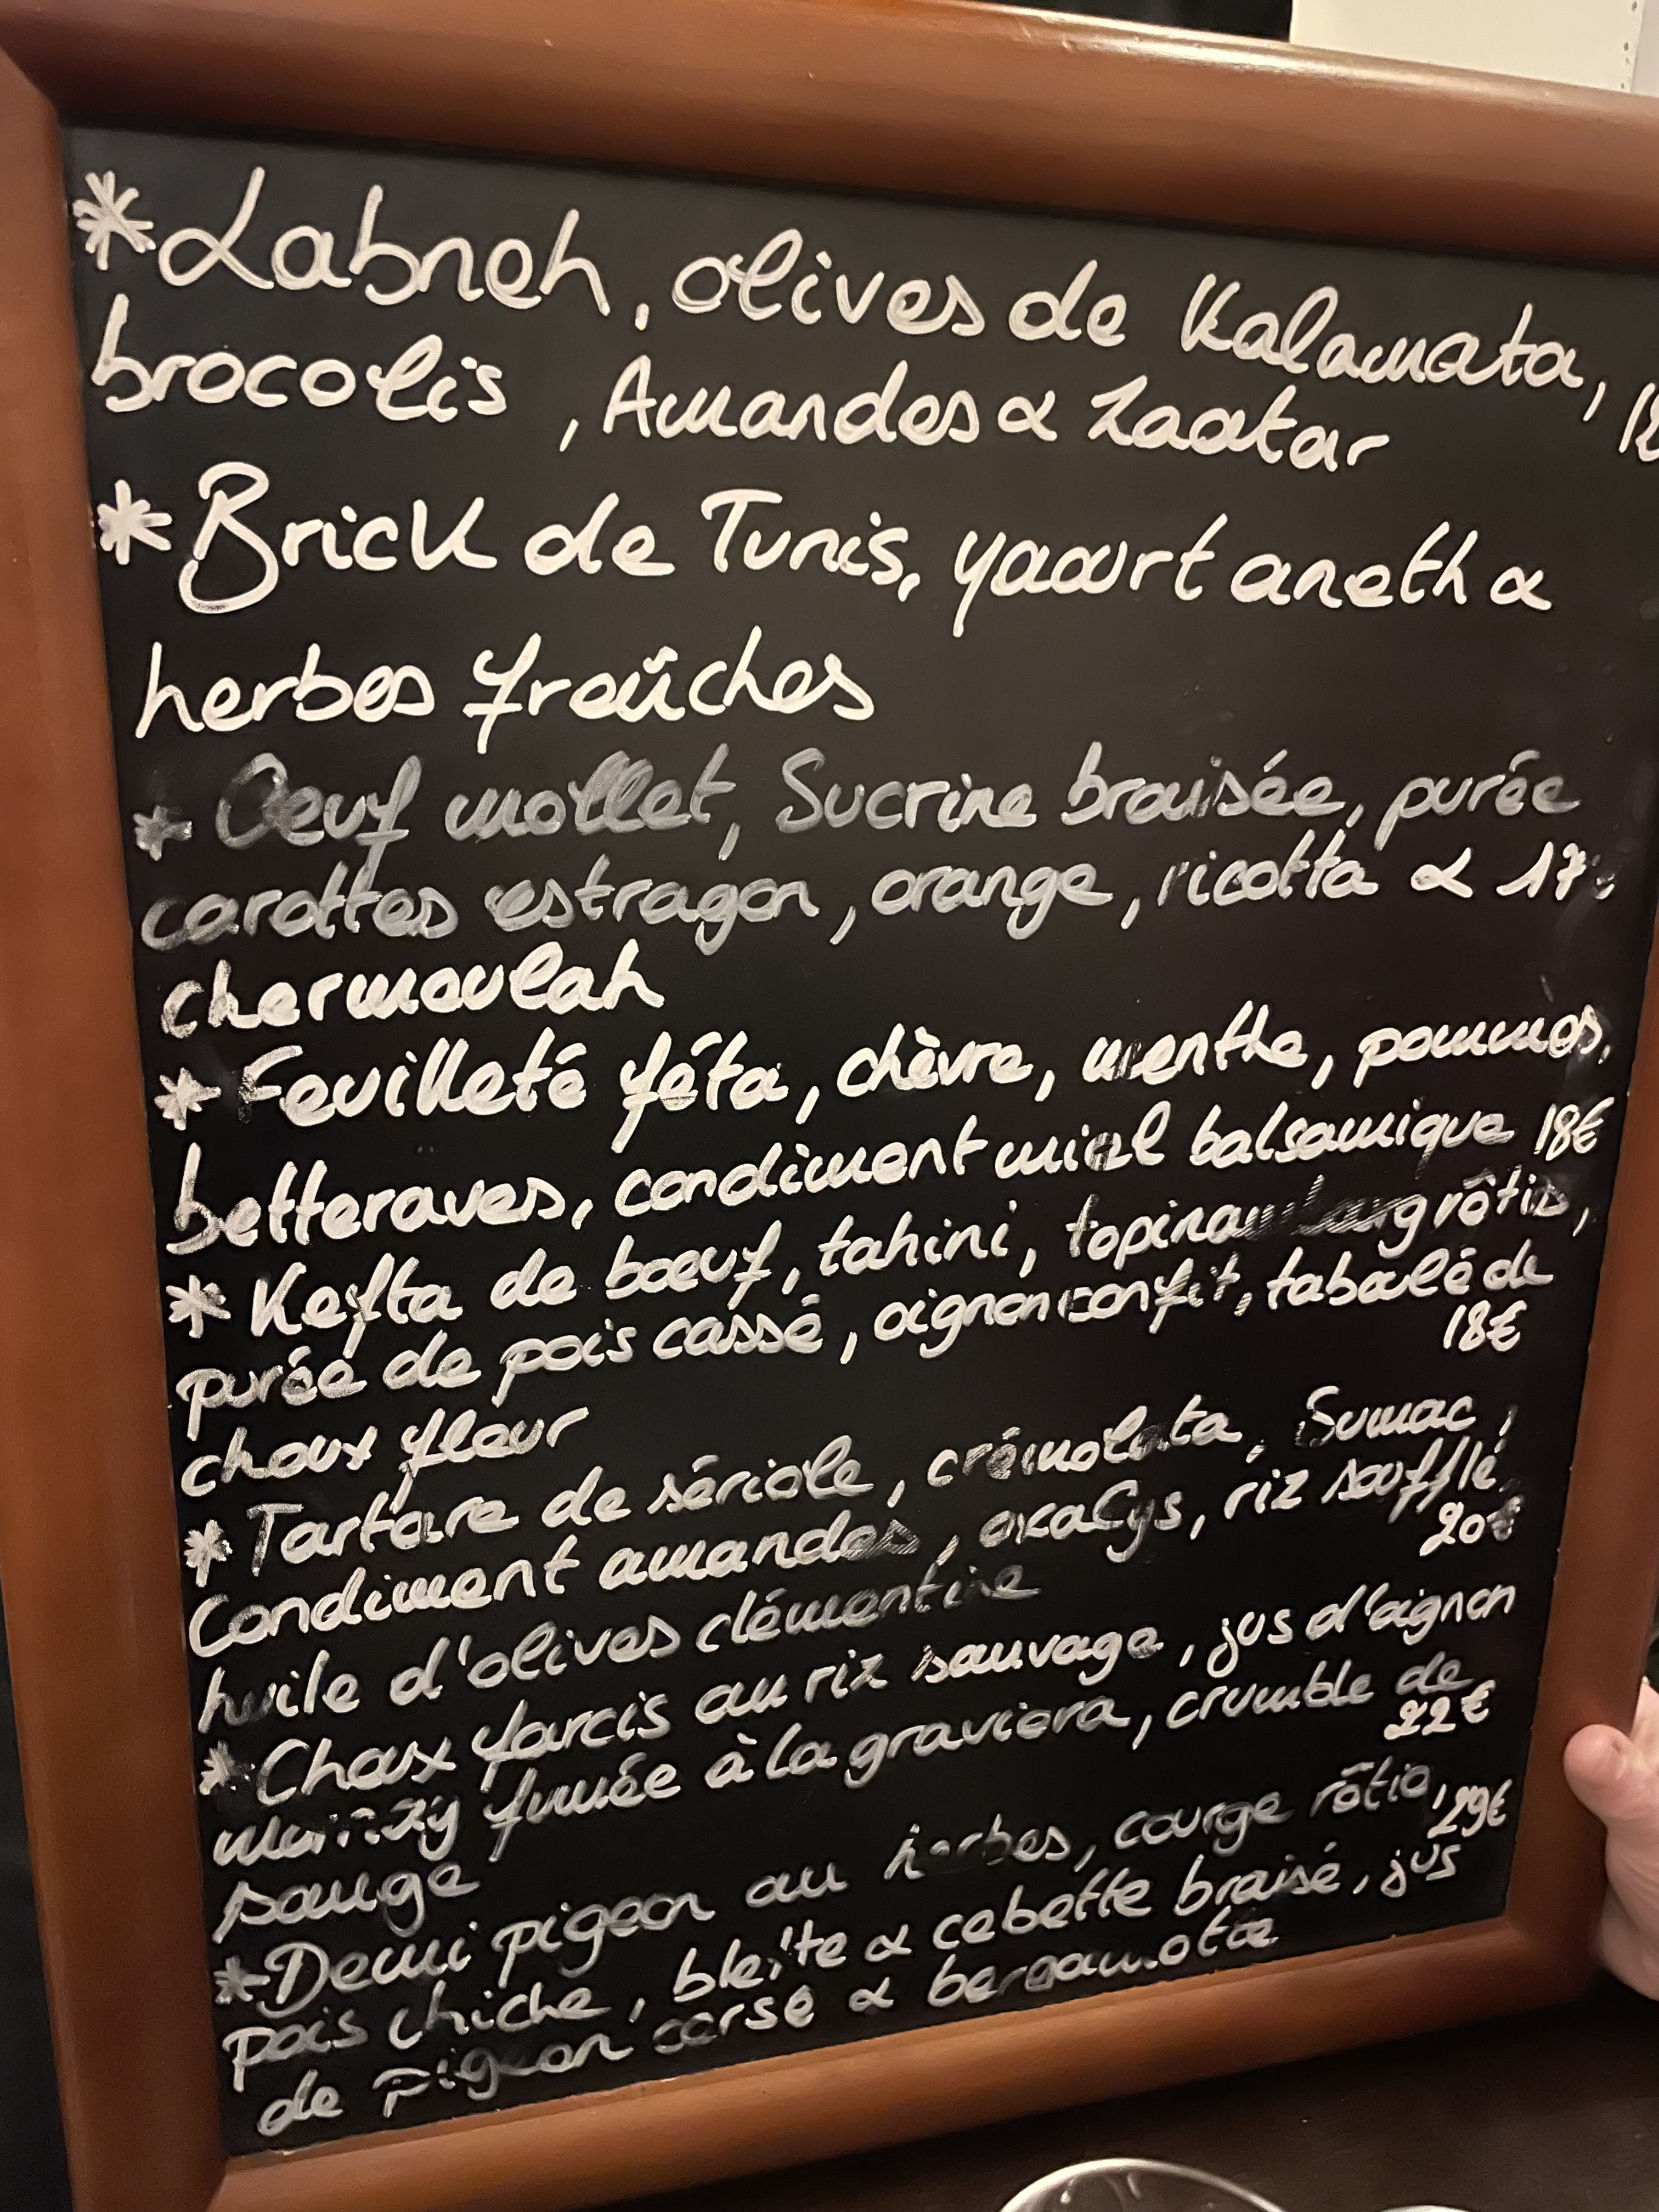 *Labneh, olives de Kalamata,
brocolis, Amandes & Zaatar
*Brick de Tunis, yaourt aneth &
herbes fraîches
* Oeuf mollet, Sucrine braisée, purée
carottes estragon, orange, ricotta & 17€
chermoulah
*Feuilleté féta, chèvre, menthe, pommes,
betteraves, condiment miel balsamique 18€
* Kefta de bœuf, tahini, grôtis,
purée de pois cassé, oignon confit, taboulé de
18€
choux fleur
*Tartare de sériole, crémolata, Sumac,
Condiment amandes, oxalys, riz soufflé,
20€
huile d'olives clémentine
* Choux farcis au riz sauvage, jus d'oignon
fumée à la graviera, crumble de
22€
sauge
*Demi pigeon au herbes, courge rôtie, 29€
pois chiche, blette & cebette braisé, jus
de Pigeon corsé & bergamote